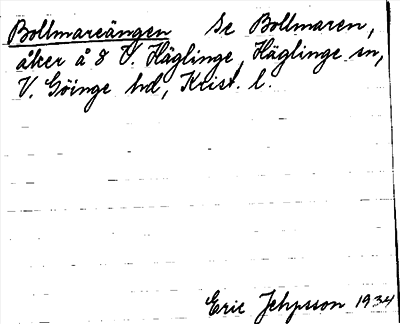 Bollmareängen Se Bollmaren,
åker å 8 V. Häglinge, Häglinge sn,
V. Göinge hd, Krist. l.
Eric Jehpsson 1934